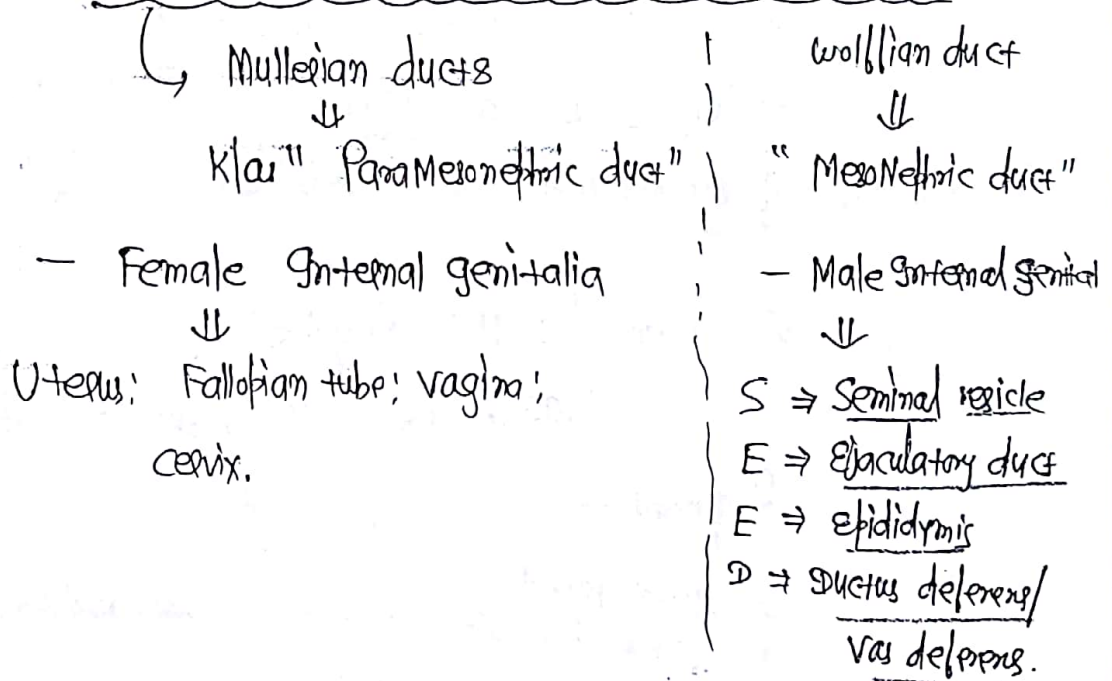 Mullerian ducts
⇓
K/as "ParaMesonephric duct"
– Female Internal genitalia
⇓
Uterus; Fallopian tube; vagina;
cervix.
wolffian duct
⇓
"MesoNephric duct"
– Male Internal genital
⇓
S ⇒ Seminal vesicle
E ⇒ Ejaculatory duct
E ⇒ Epididymis
D ⇒ Ductus deferens/
Vas deferens.